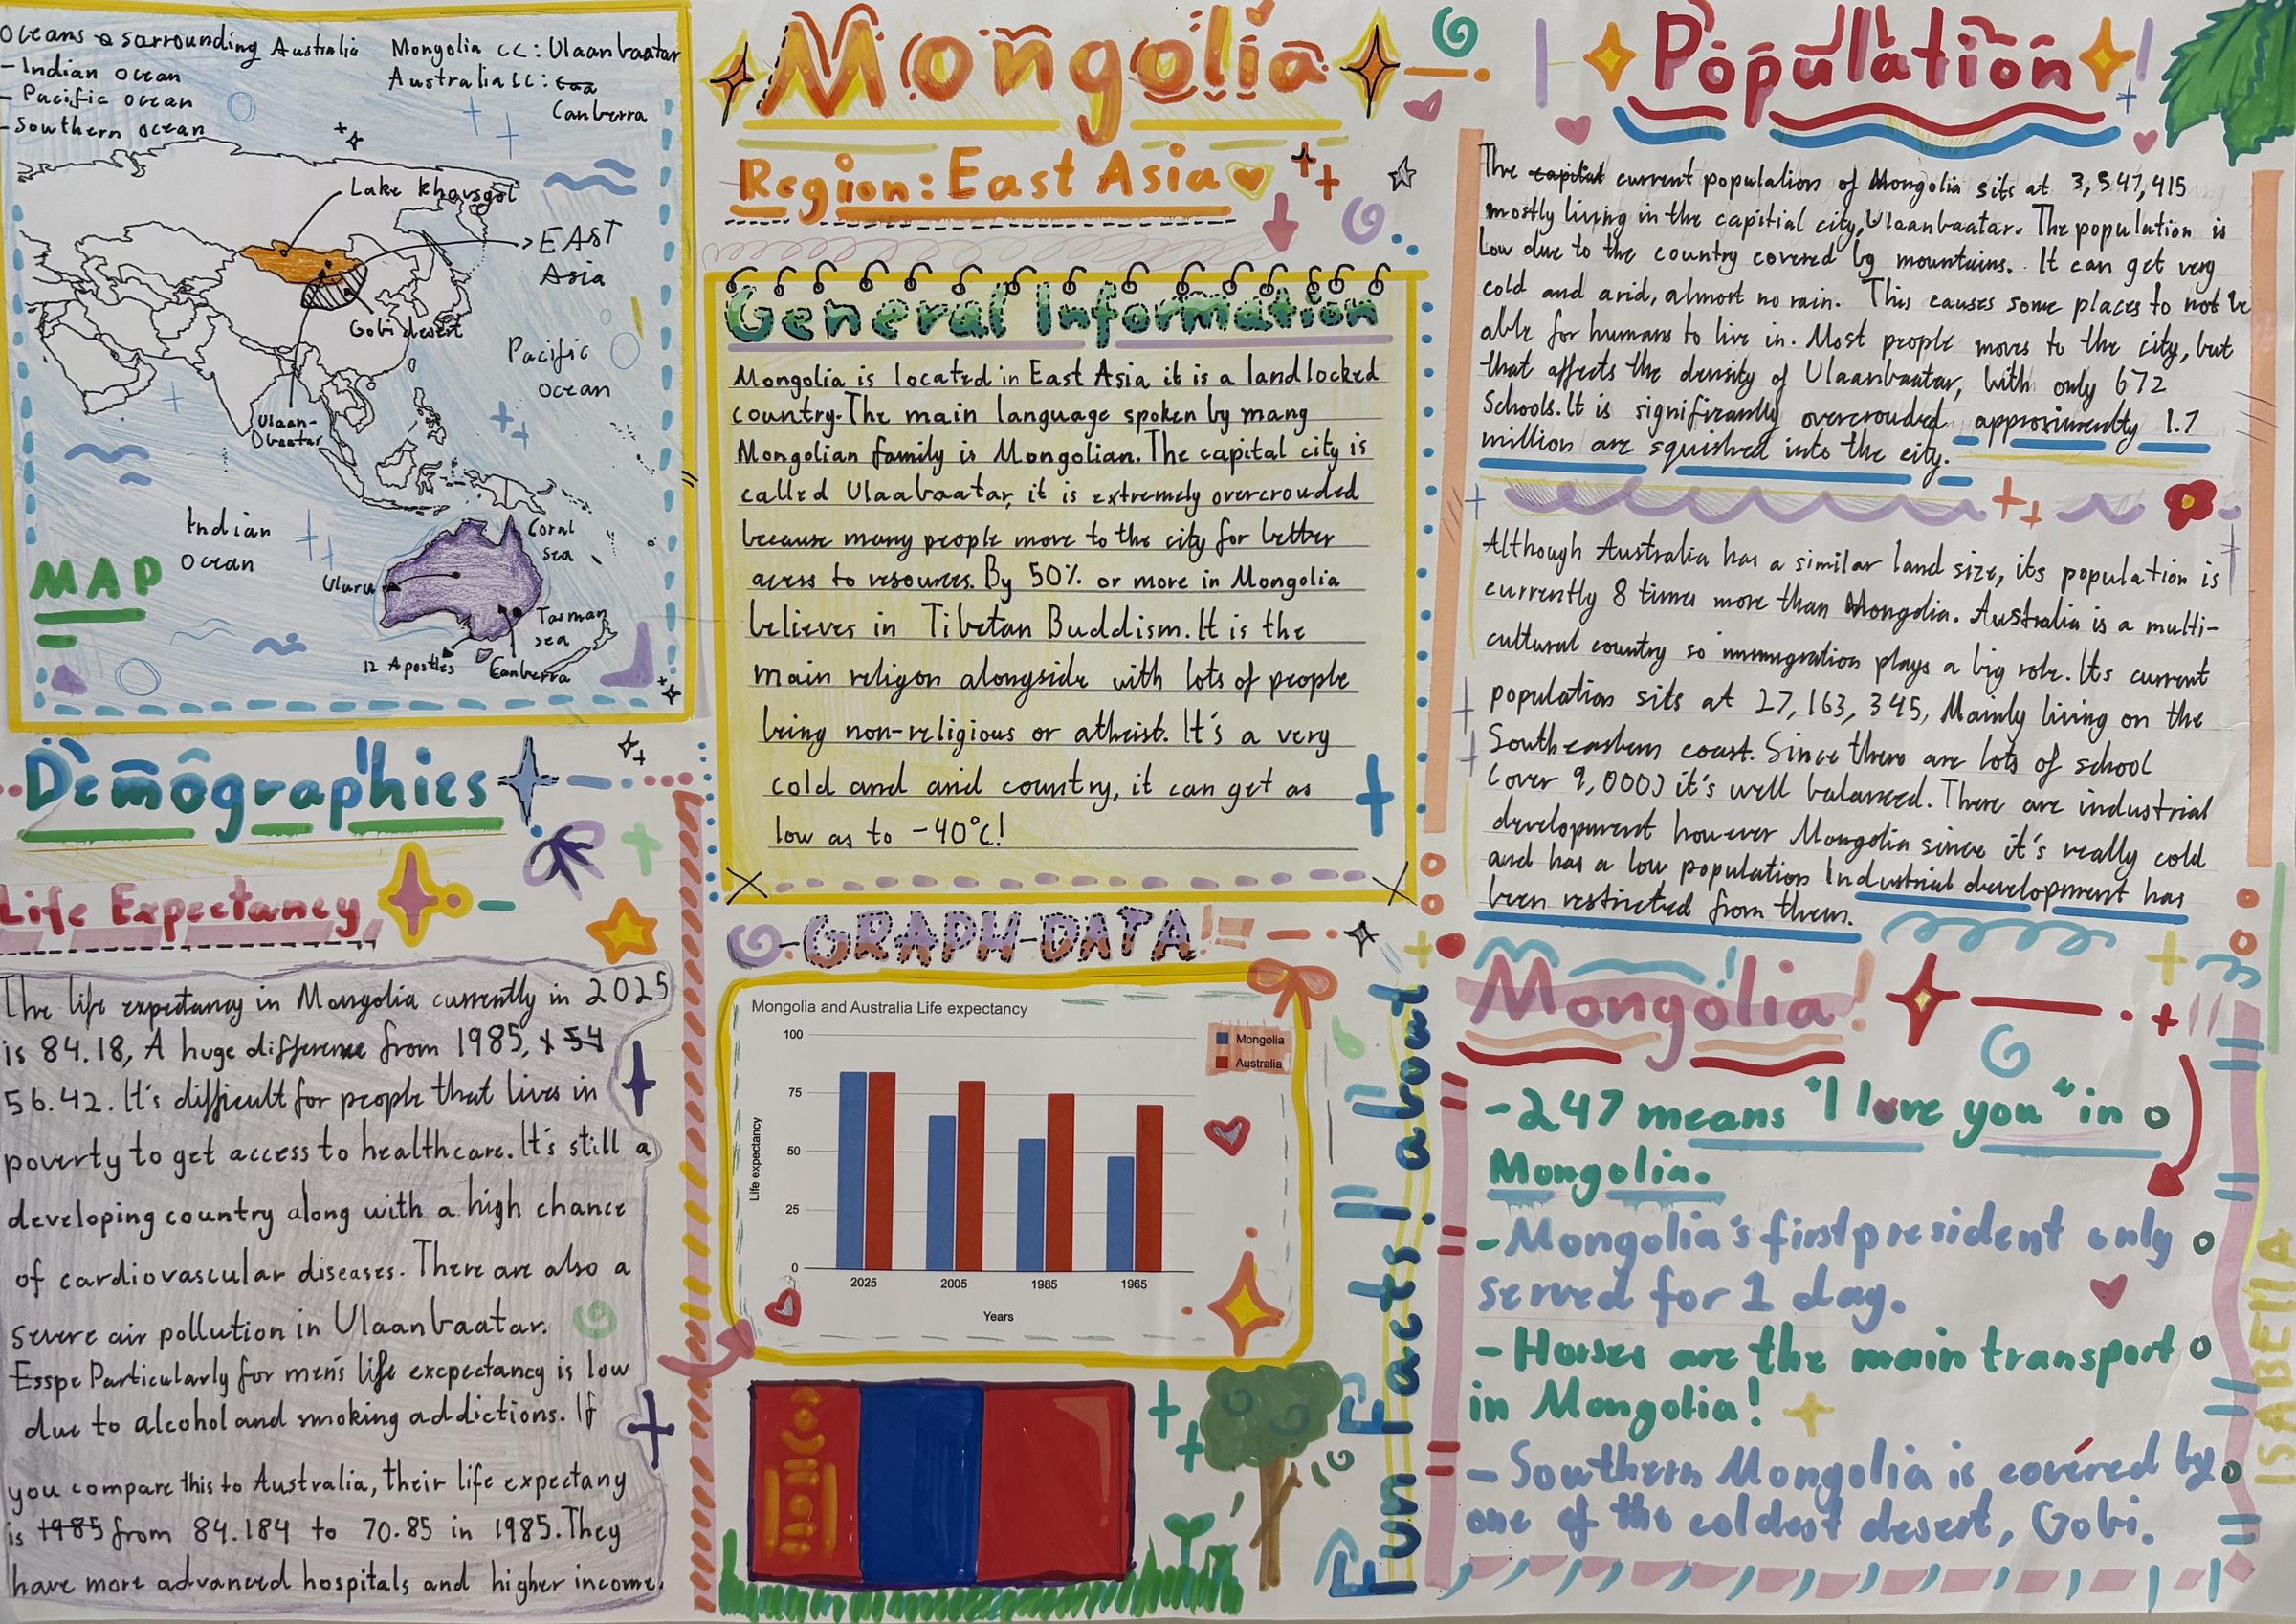 Oceans surrounding Australia
- Indian ocean
- Pacific ocean
- Southern ocean
Mongolia CC: Ulaanbaatar
Australia CC: Caa
Canberra
Lake khovsgol
EAST
Asia
Gobi desert
Pacific
ocean
Ulaan-
baatar
Indian
Ocean
Coral
sea
MAP
Uluru
Tasman
sea
12 Apostles
Canberra
Demographics
Life Expectancy
The life expectancy in Mongolia currently in 2025
is 84.18, A huge difference from 1985, 54
56.42. It's difficult for people that lives in
poverty to get access to healthcare. It's still a
developing country along with a high chance
of cardiovascular diseases. There are also a
severe air pollution in Ulaanbaatar.
Esspe Particularly for men's life excpectancy is low
due to alcohol and smoking addictions. If
you compare this to Australia, their life expectany
is 1985 from 84.184 to 70.85 in 1985. They
have more advanced hospitals and higher income.
Mongolia
Region: East Asia
General Information
Mongolia is located in East Asia it is a landlocked
country. The main language spoken by mang
Mongolian family is Mongolian. The capital city is
called Ulaabaatar, it is extremely overcrouded
because many people move to the city for better
acess to resources. By 50% or more in Mongolia
believes in Tibetan Buddism. It is the
main religon alongside with lots of people
being non-religious or atheist. It's a very
cold and arid country, it can get as
low as to -40°C!
GRAPH DATA!
Mongolia and Australia Life expectancy
100
75
50
25
0
Life expectancy
2025
2005
1985
1965
Years
Mongolia
Australia
Population
The capital current population of Mongolia sits at 3,547,415
mostly living in the capitial city, Ulaanbaatar. The population is
Low due to the country covered by mountains. It can get very
cold and arid, almost no rain. This causes some places to not be
able for humans to live in. Most people moves to the city, but
that affects the density of Ulaanbaatar, with only 672
Schools. It is significantly overcrouded approximently 1.7
million are squished into the city.
Although Australia has a similar land size, its population is
currently 8 times more than Mongolia. Australia is a multi-
cultural country so immugration plays a big role. Its current
population sits at 27,163,345, Mainly living on the
Southeastern coast. Since there are lots of school
(over 9,000) it's well balanced. There are industrial
development however Mongolia since it's really cold
and has a low population Industrial development has
been restricted from them.
Fun Facts about
Mongolia!
- 247 means "I love you" in
Mongolia.
- Mongolia's first president only
served for 1 day.
- Horses are the main transport
in Mongolia!
- Southern Mongolia is covered by
one of the coldest desert, Gobi.
ISABELLA